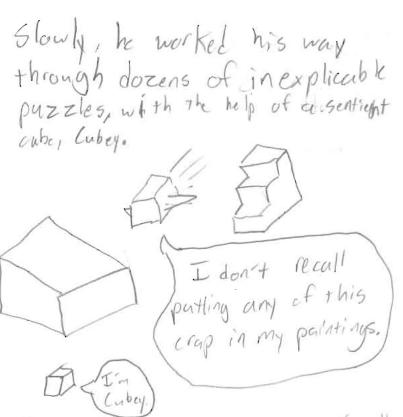 Slowly, he worked his way
through dozens of inexplicable
puzzles, with the help of a sentient
cube, Cubey.
I don't recall
putting any of this
crap in my paintings.
I'm
Cubey.